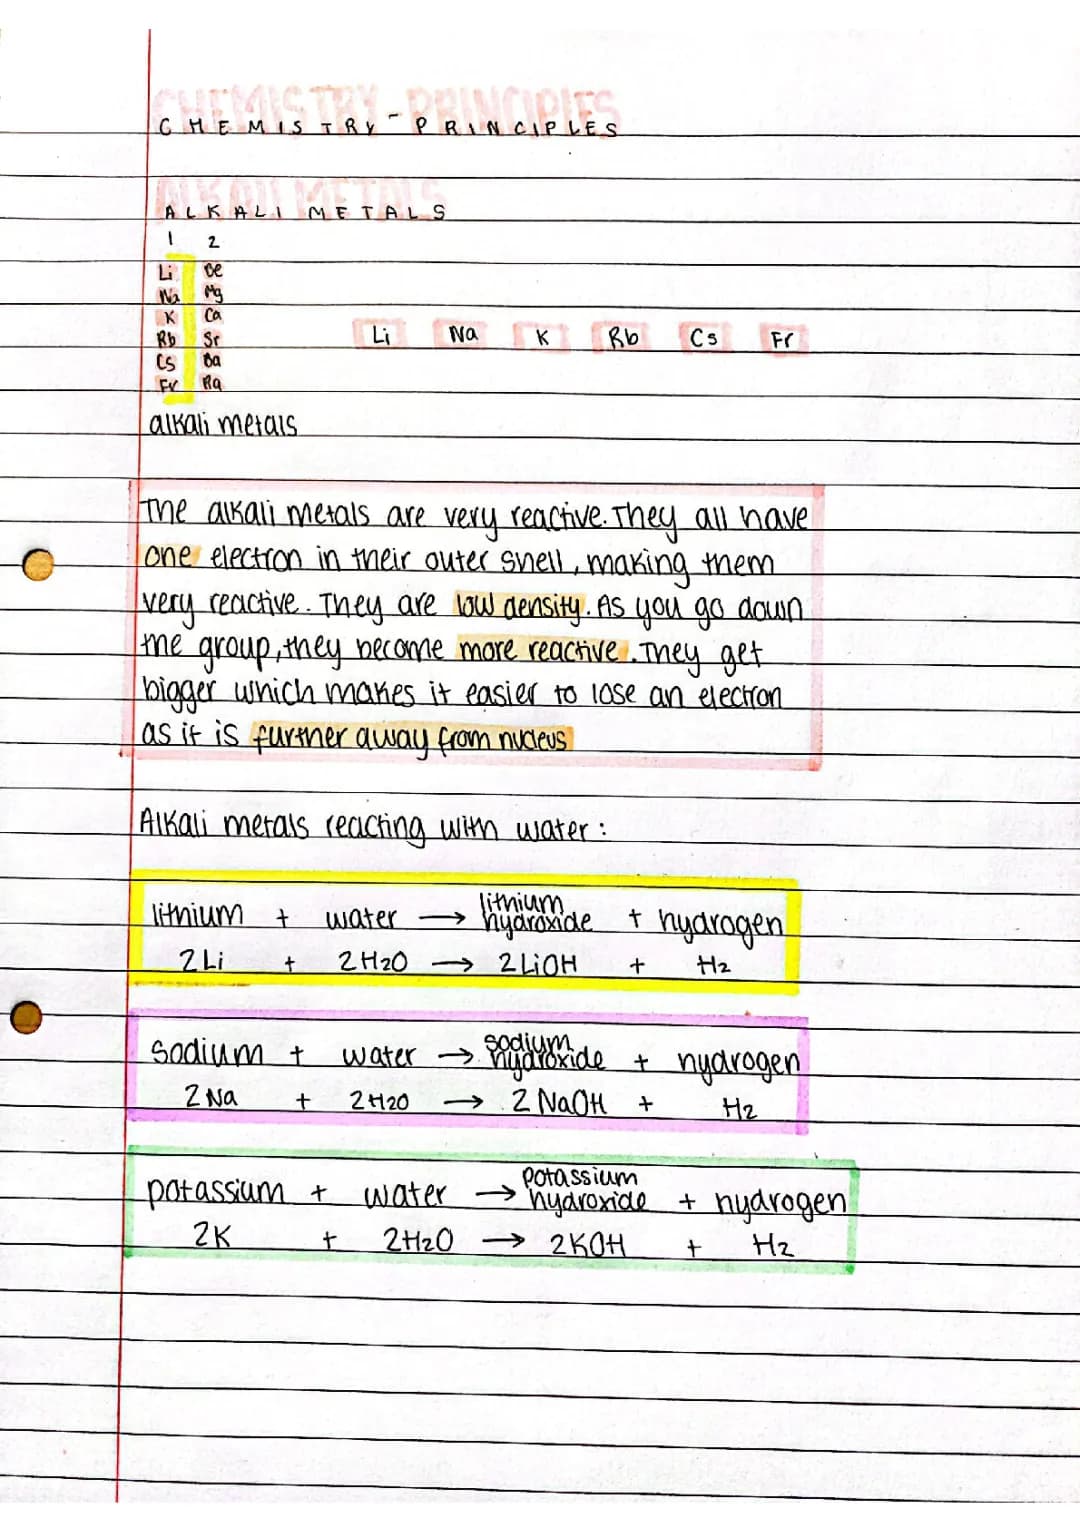 CHEMISTRY - PRINCIPLES
ALKALI METALS
1 2
Li Be
Na Mg
K Ca
Rb Sr
Cs Ba
Fr Ra
Li Na K Rb Cs Fr
alkali metals
The alkali metals are very reactive. They all have
one electron in their outer shell, making them
very reactive. They are low density. As you go down
the group, they become more reactive. They get
bigger which makes it easier to lose an electron
as it is further away from nucleus
Alkali metals reacting with water:
lithium + water → lithium hydroxide + hydrogen
2Li + 2H2O → 2LiOH + H2
sodium + water → sodium hydroxide + hydrogen
2Na + 2H2O → 2NaOH + H2
potassium + water → potassium hydroxide + hydrogen
2K + 2H2O → 2KOH + H2